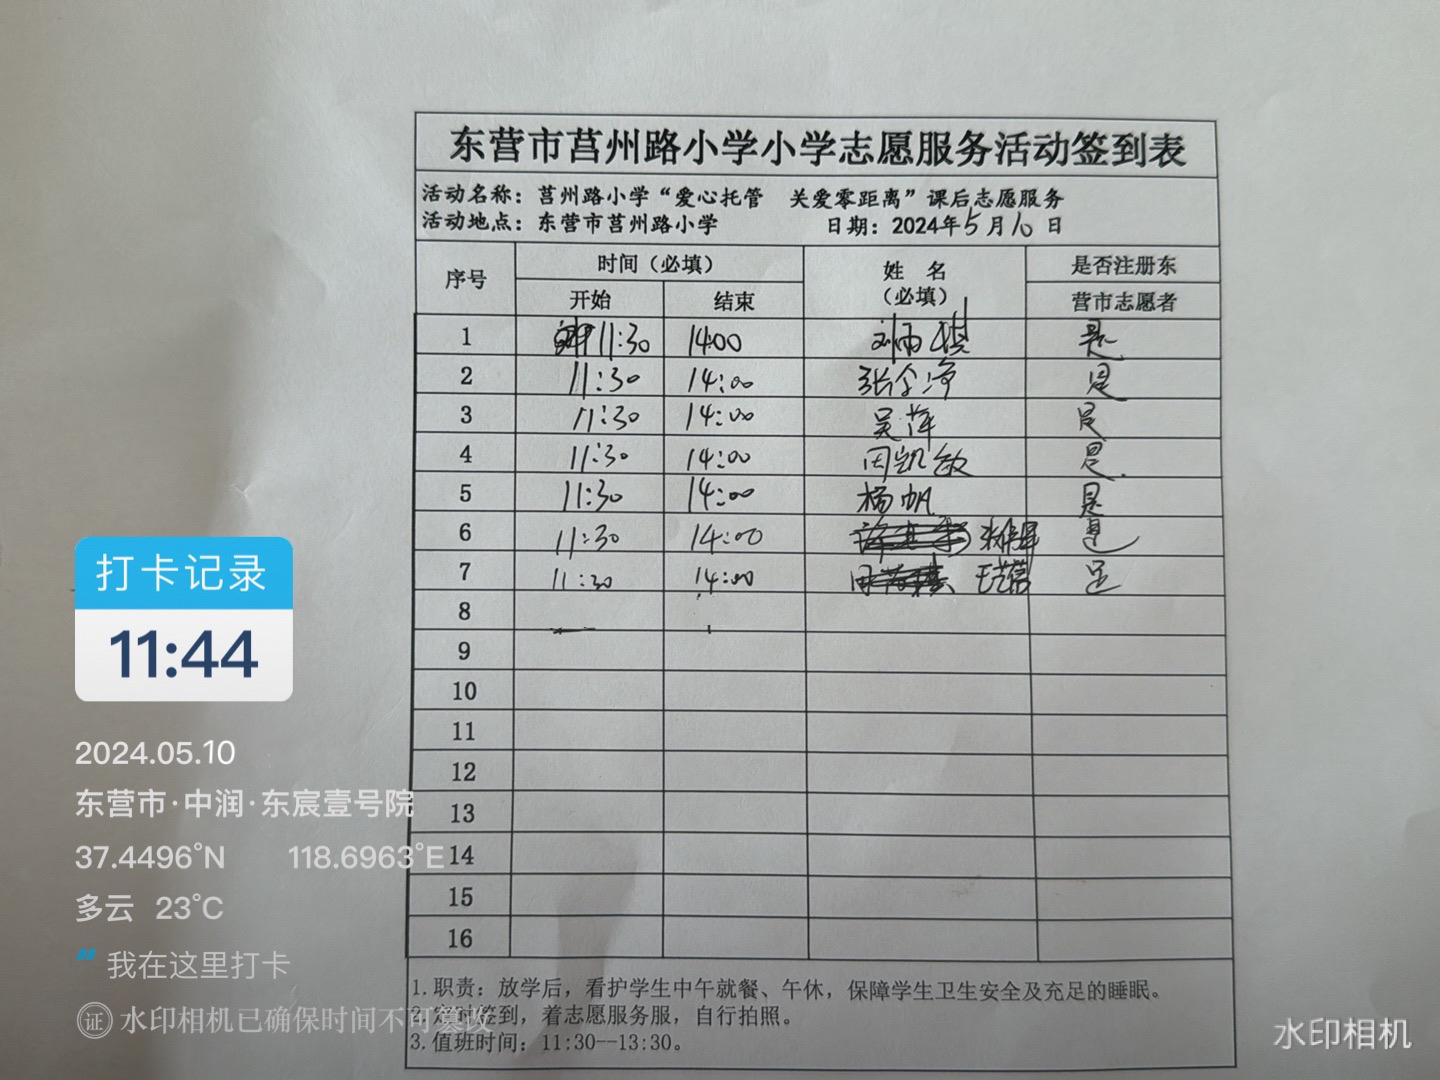 东营市莒州路小学小学志愿服务活动签到表
活动名称：莒州路小学“爱心托管 关爱零距离”课后志愿服务
活动地点：东营市莒州路小学 日期：2024年5月10日
序号 时间（必填） 姓 名（必填） 是否注册东营市志愿者
开始 结束
1 11:30 14:00 刘雨祺 是
2 11:30 14:00 是
3 11:30 14:00 吴萍 是
4 11:30 14:00 周凯敏 是
5 11:30 14:00 杨帆 是
6 11:30 14:00 是
7 11:30 14:00 是
8
9
10
11
12
13
14
15
16
1.职责：放学后，看护学生中午就餐、午休，保障学生卫生安全及充足的睡眠。
2.定时签到，着志愿服务服，自行拍照。
3.值班时间：11:30--13:30。
打卡记录
11:44
2024.05.10
东营市·中润·东宸壹号院
37.4496°N 118.6963°E
多云 23°C
我在这里打卡
证 水印相机已确保时间不可篡改
水印相机